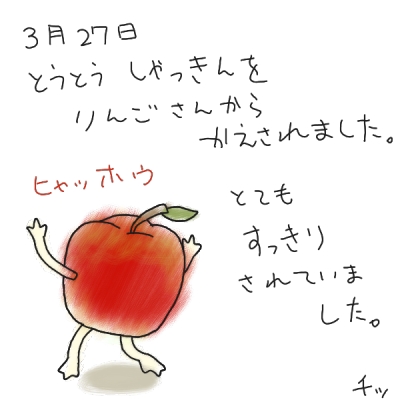 3月27日
とうとう しゃっきんを
りんごさんから
かえされました。
ヒャッホウ
とても
すっきり
されていま
した。
チッ